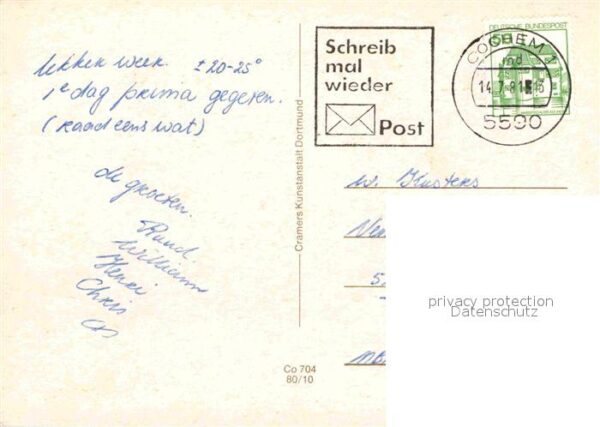 lekker weer. ± 20-25°
1e dag prima gegeten.
(raad eens wat)
de groeten.
Ruud.
William
Henri
Chris
Cramers Kunstanstalt Dortmund
Co 704
80/10
Schreib
mal
wieder
Post
DEUTSCHE BUNDESPOST
50
COCHEM 1
md
14.7.81-13
5590
W. Kusters
Ven
5.
privacy protection
Datenschutz